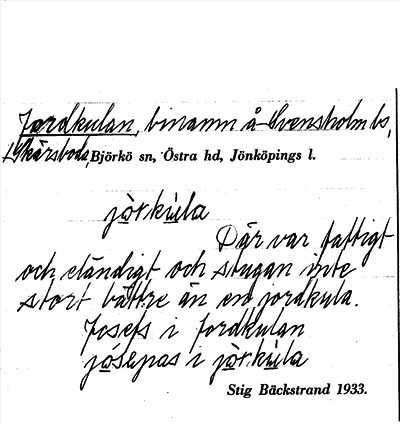 Jordkulan, binamn å Svensholm bs,
Skärsboda, Björkö sn, Östra hd, Jönköpings l.
jòrkùla
Där var fattigt
och eländigt och stugan inte
stort bättre än en jordkula.
Josefs i Jordkulan
jósepas i jòrkùla
Stig Bäckstrand 1933.